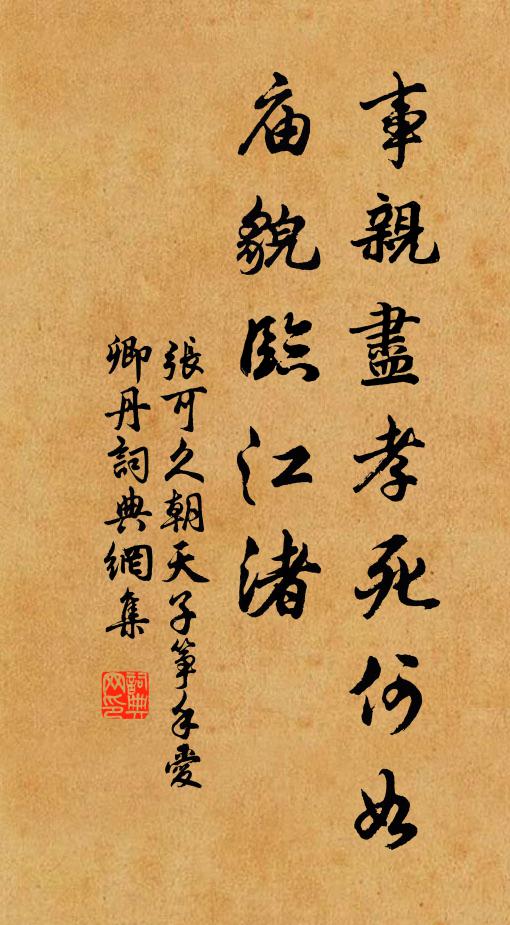 事親盡孝死何如
庙貌臨江渚
張可久朝天子箏手愛
卿丹詞典網集
詞典网印